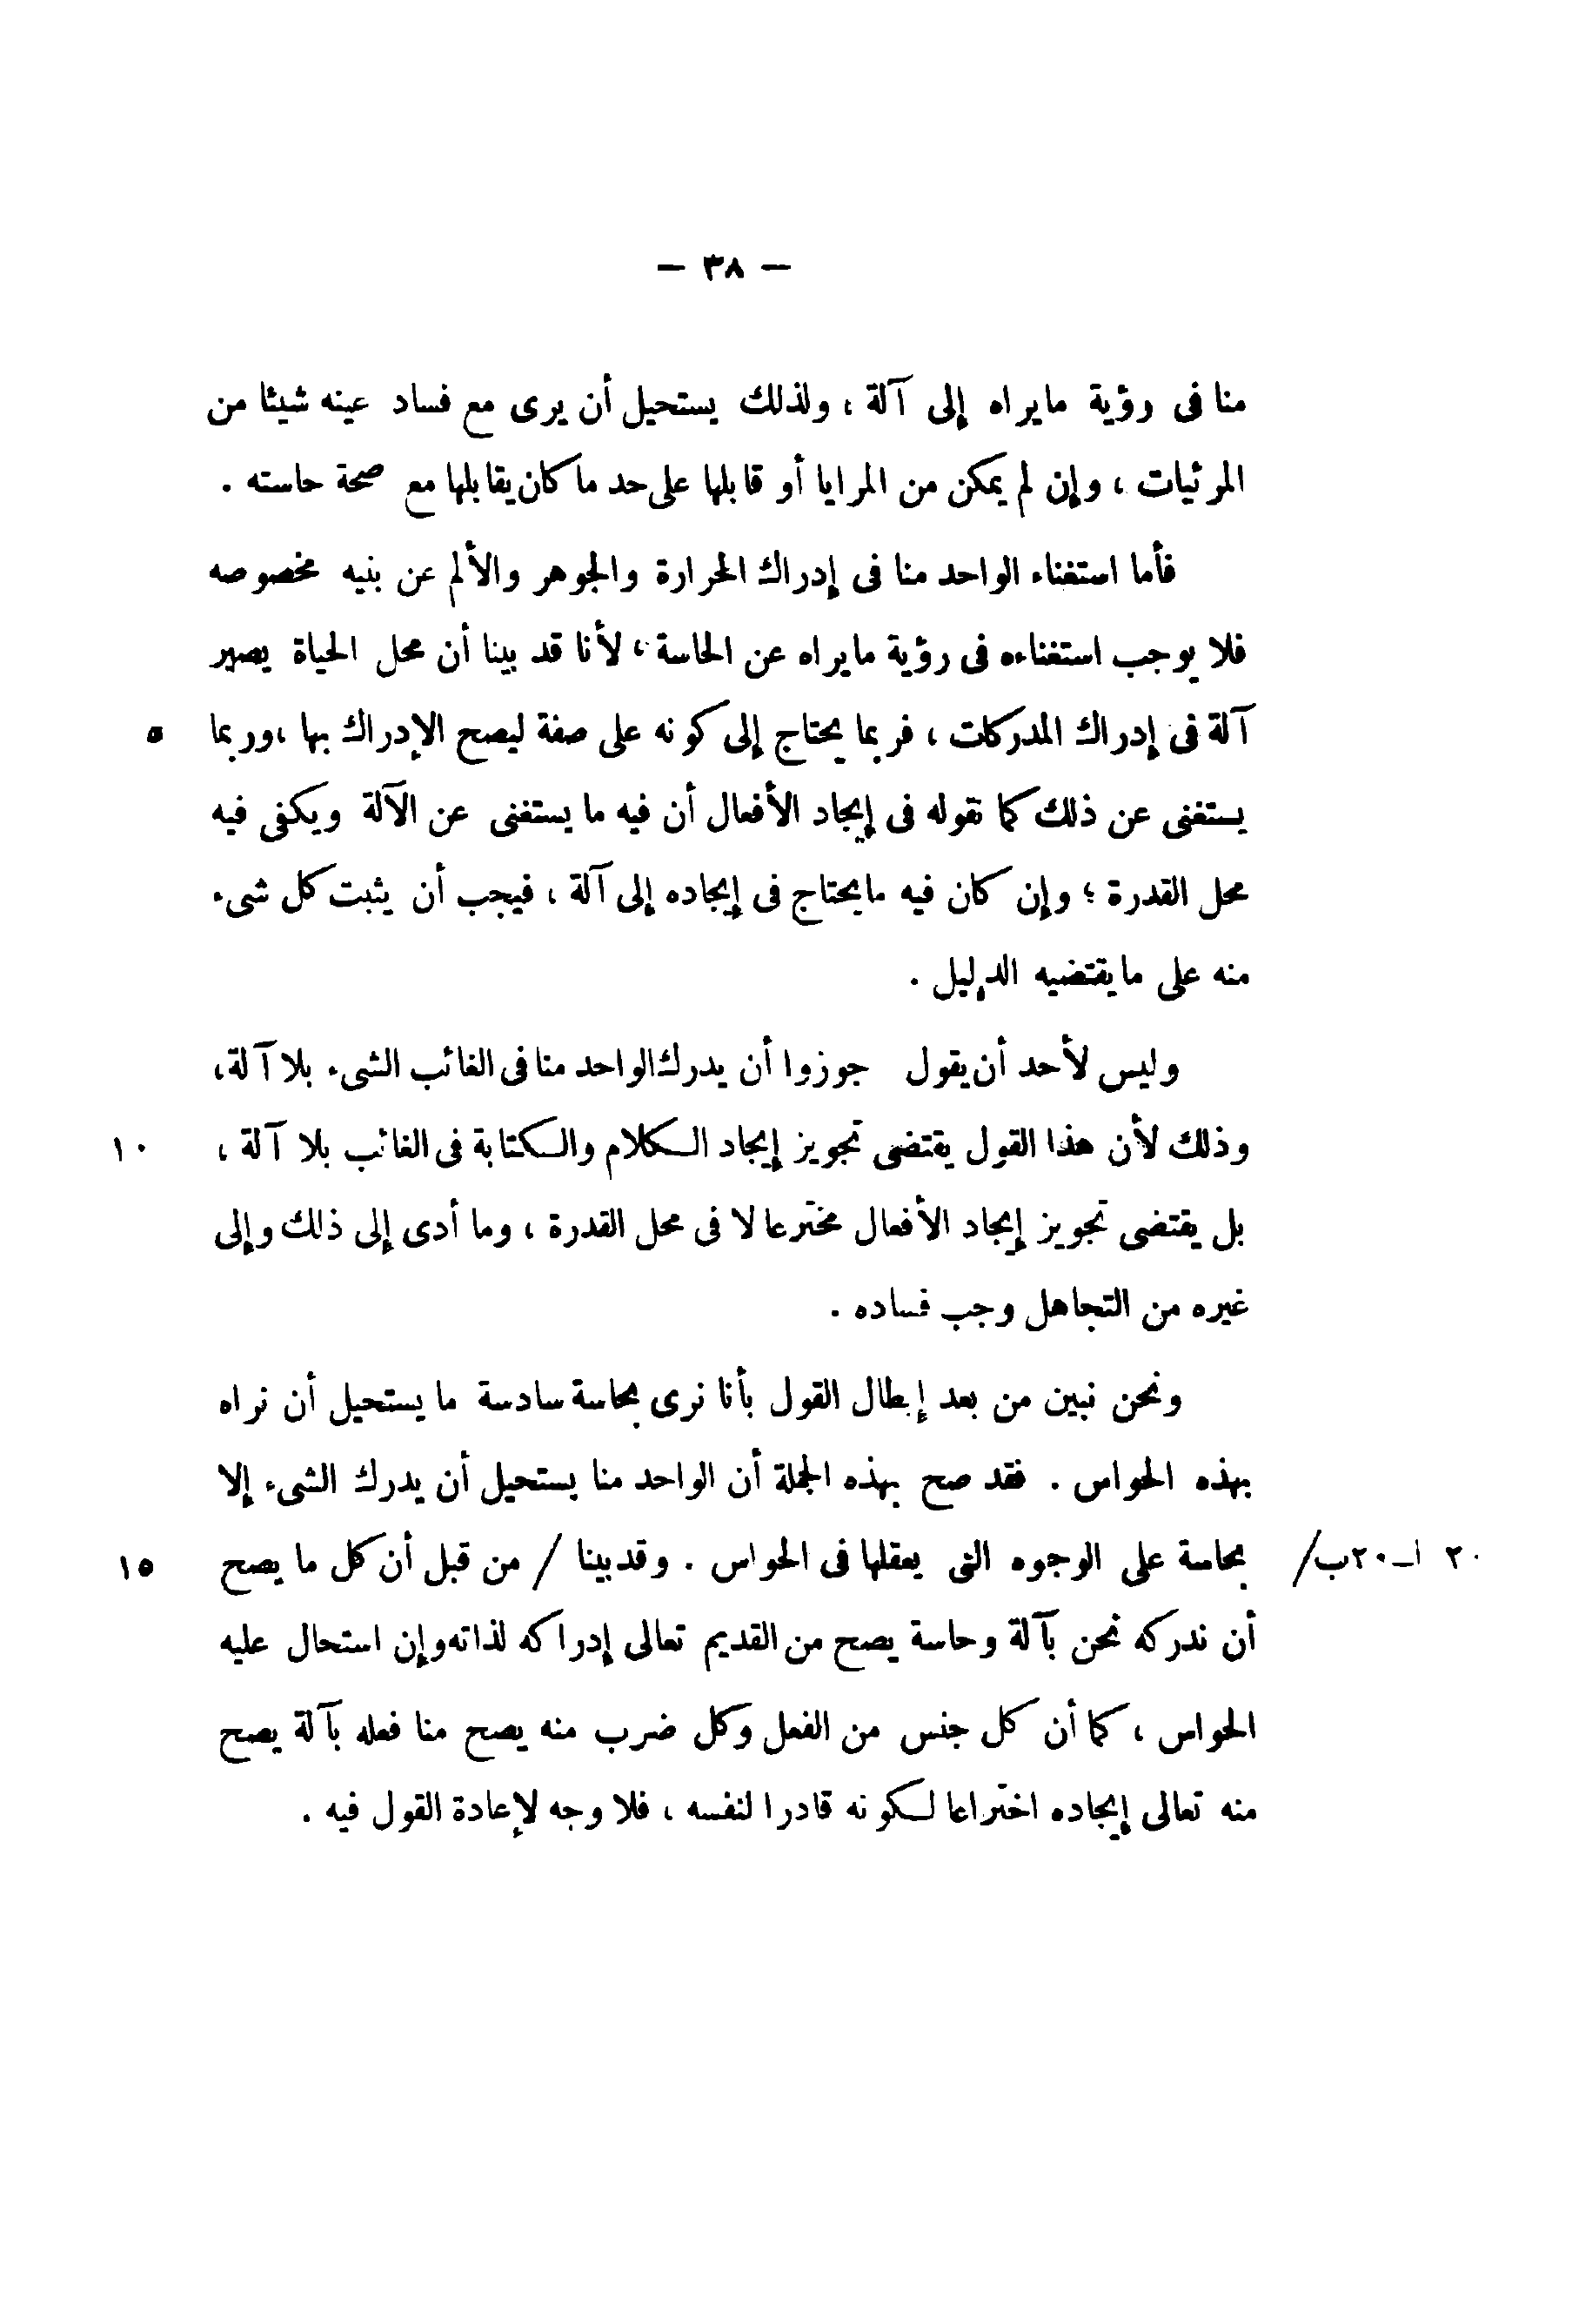 — ٣٨ —
منا فى رؤية مايراه إلى آلة ، ولذلك يستحيل أن يرى مع فساد عينه شيئا من
المرئيات ، وإن لم يمكن من المرايا أو قابلها على حد ما كان يقابلها مع صحة حاسته .
فأما استغناء الواحد منا فى إدراك الحرارة والجوهر والألم عن بنيه مخصوصه
فلا يوجب استغناءه فى رؤية مايراه عن الحاسة ، لأنا قد بينا أن محل الحياة يصير
آلة فى إدراك المدركات ، فربما يحتاج إلى كونه على صفة ليصح الإدراك بها ، وربما ٥
يستغنى عن ذلك كما نقوله فى إيجاد الأفعال أن فيه ما يستغنى عن الآلة ويكفى فيه
محل القدرة ؛ وإن كان فيه مايحتاج فى إيجاده إلى آلة ، فيجب أن يثبت كل شىء
منه على مايقتضيه الدليل .
وليس لأحد أن يقول جوزوا أن يدرك الواحد منا فى الغائب الشىء بلا آلة ،
وذلك لأن هذا القول يقتضى تجويز إيجاد الكلام والكتابة فى الغائب بلا آلة ، ١٠
بل يقتضى تجويز إيجاد الأفعال مخترعا لا فى محل القدرة ، وما أدى إلى ذلك وإلى
غيره من التجاهل وجب فساده .
ونحن نبين من بعد إبطال القول بأنا نرى بحاسة سادسة ما يستحيل أن نراه
بهذه الحواس . فقد صح بهذه الجملة أن الواحد منا يستحيل أن يدرك الشىء إلا
٢٠ ا ــ ٢٠ب/ بحاسة على الوجوه التى يعقلها فى الحواس . وقد بينا / من قبل أن كل ما يصح ١٥
أن ندركه نحن بآلة وحاسة يصح من القديم تعالى إدراكه لذاته وإن استحال عليه
الحواس ، كما أن كل جنس من الفعل وكل ضرب منه يصح منا فعله بآلة يصح
منه تعالى إيجاده اختراعا لكونه قادرا لنفسه ، فلا وجه لإعادة القول فيه .